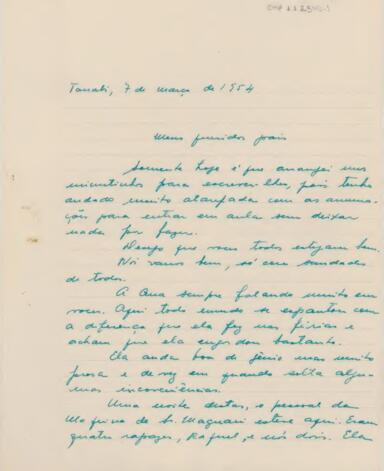 Tanabi, 7 de março de 1954
Meus queridos pais
Somente hoje é que arranjei uns
minutinhos para escrever-lhes, pois tenho
andado muito atarefada com as arruma-
ções para entrar em aula sem deixar
nada por fazer.
Desejo que vocês todos estejam bem.
Nós vamos bem, só com saudades
de todos.
A Ana sempre falando muito em
vocês. Aqui todo mundo se espantou com
a diferença que ela fez nas férias e
acham que ela engordou bastante.
Ela anda boa de gênio mas muito
prosa e de vez em quando solta algu-
mas inconveniências.
Uma noite destas, o pessoal da
Máquina do Sr. Maguari esteve aqui. Eram
quatro rapazes, Rafael, e nós dois. Ela